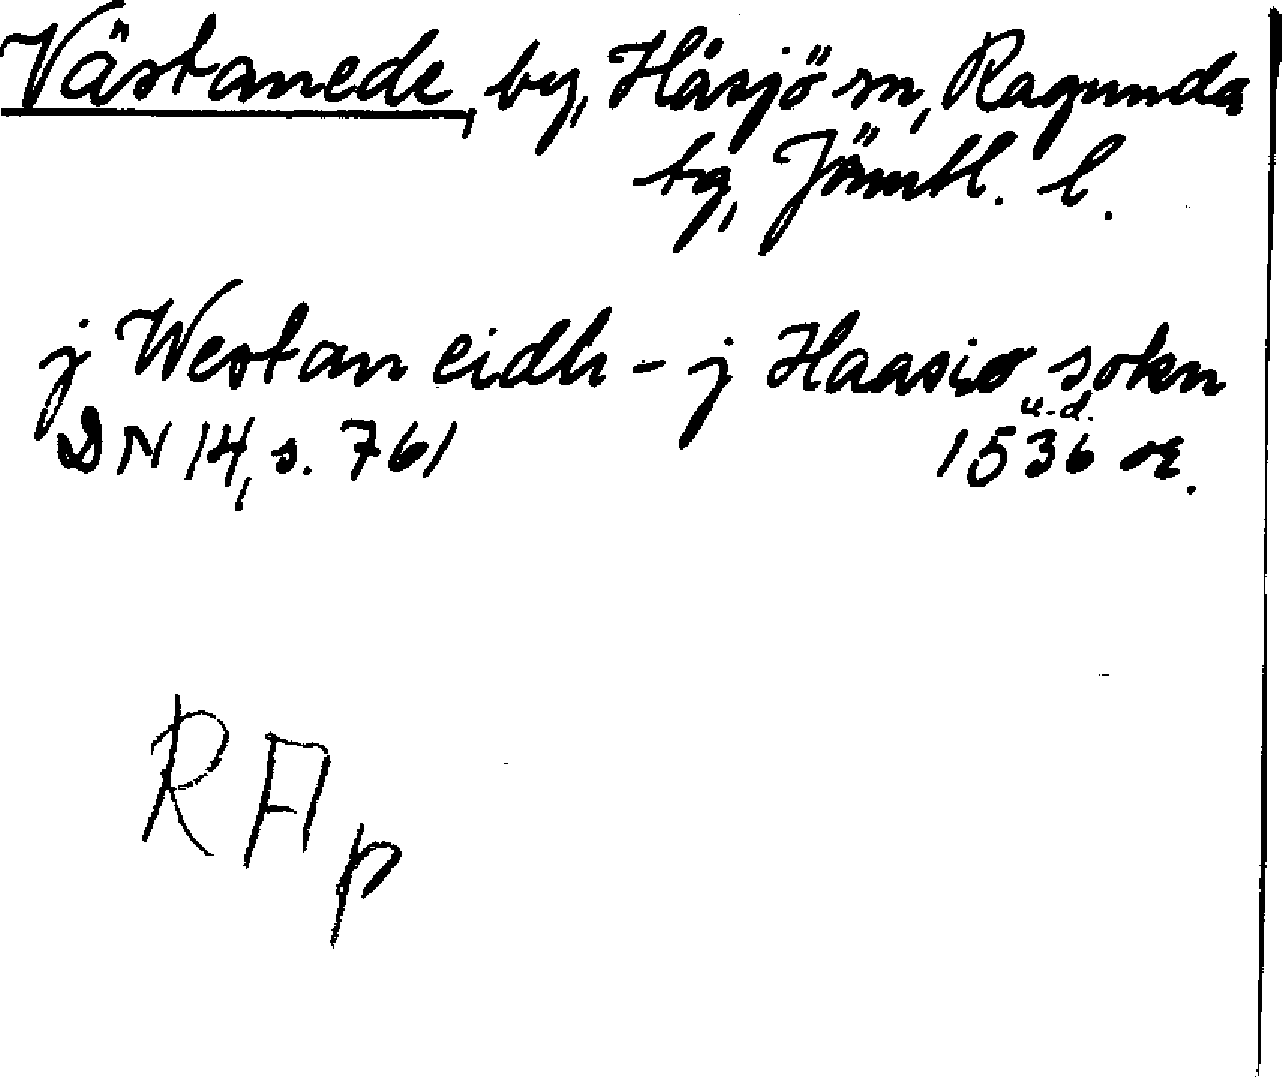 Västanede, by, Håsjö sn, Ragunda
tg, Jämtl. l.
j Westan eidh - j Haasiø sokn
u.d.
DN 14, s. 761 1536 or.
RAp